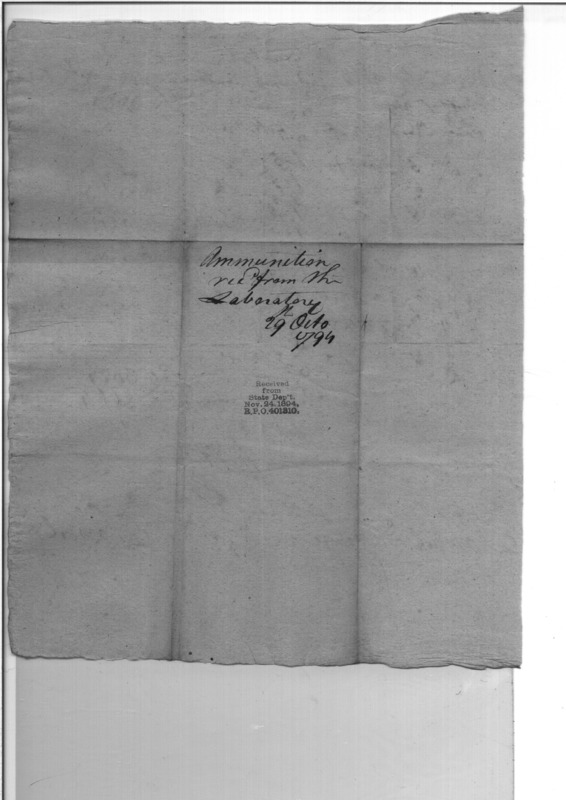 Ammunition
recd from the
Laboratory
29 Octo
1794
Received
from
State Dep't.
Nov. 24, 1894,
R.P.O. 401310.